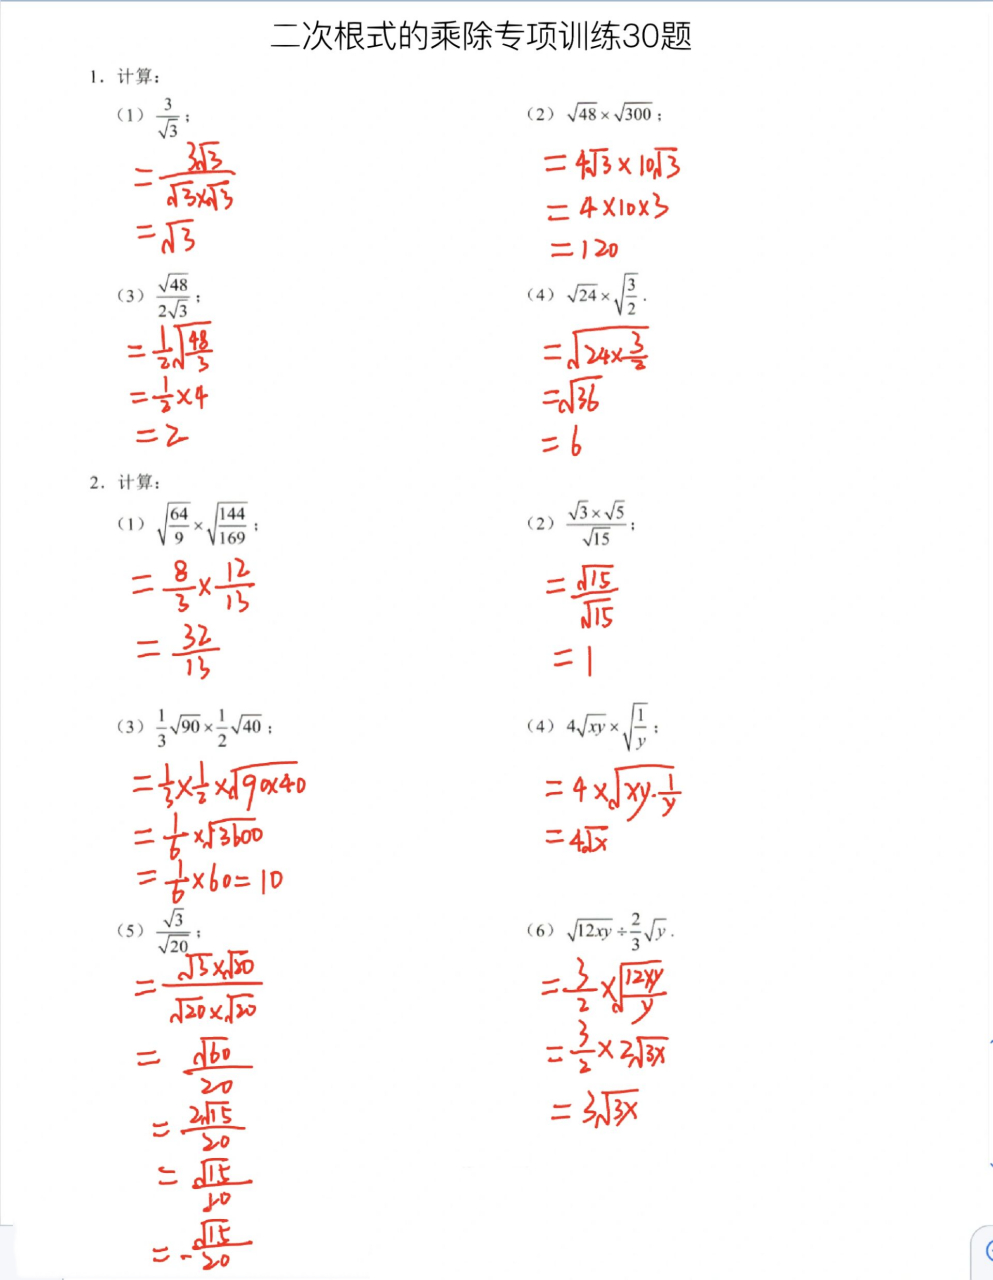 二次根式的乘除专项训练30题
1．计算：
（1）3/√3；
= 3√3/(√3×√3)
= √3
（2）√48×√300；
= 4√3×10√3
= 4×10×3
= 120
（3）√48/(2√3)；
= 1/2√(48/3)
= 1/2×4
= 2
（4）√24×√(3/2)．
= √(24×3/2)
= √36
= 6
2．计算：
（1）√(64/9)×√(144/169)；
= 8/3×12/13
= 32/13
（2）(√3×√5)/√15；
= √15/√15
= 1
（3）1/3√90×1/2√40；
= 1/3×1/2×√(90×40)
= 1/6×√3600
= 1/6×60=10
（4）4√(xy)×√(1/y)；
= 4×√(xy·1/y)
= 4√x
（5）√3/√20；
= (√3×√20)/(√20×√20)
= √60/20
= 2√15/20
= √15/10
= -√15/20
（6）√(12xy)÷2/3√y．
= 3/2×√(12xy/y)
= 3/2×2√(3x)
= 3√(3x)